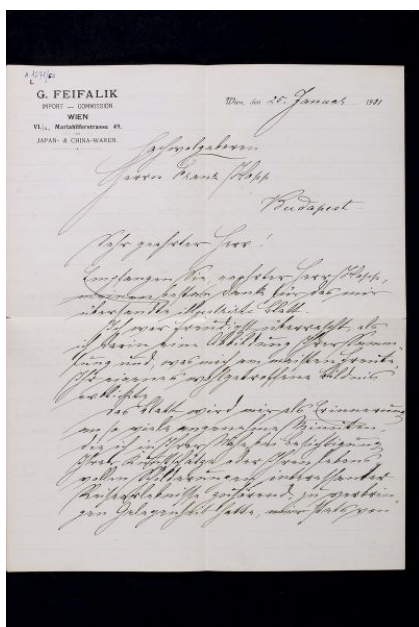 A 1673/1
G. FEIFALIK
IMPORT — COMMISSION
WIEN
VI./2, Mariahilferstrasse 49.
JAPAN- & CHINA-WAREN.
Wien, den 25. Januar 1901
Hochwolgeboren
Herrn Franz Hopp
Budapest.
Sehr geehrter Herr!
Empfangen Sie, geehrter Herr Hopp,
meinen besten Dank für das mir
übersandte illustrierte Blatt.
Ich war freudigst überrascht, als
ich darin eine Abbildung Ihrer Samm-
lung und, was mich am meisten freute,
Ihr eigenes wohlgetroffene Bildnis
erblickte.
Das Blatt wird mir als Erinnerung
an so viele angenehme Minuten,
die ich in Ihrer Nähe bei Besichtigung
Ihrer Kunstschätze oder Ihren lebens-
vollen Schilderungen interessanter
Reiseerlebnisse zuhörend, zu verbrin-
gen Gelegenheit hatte, mir stets von